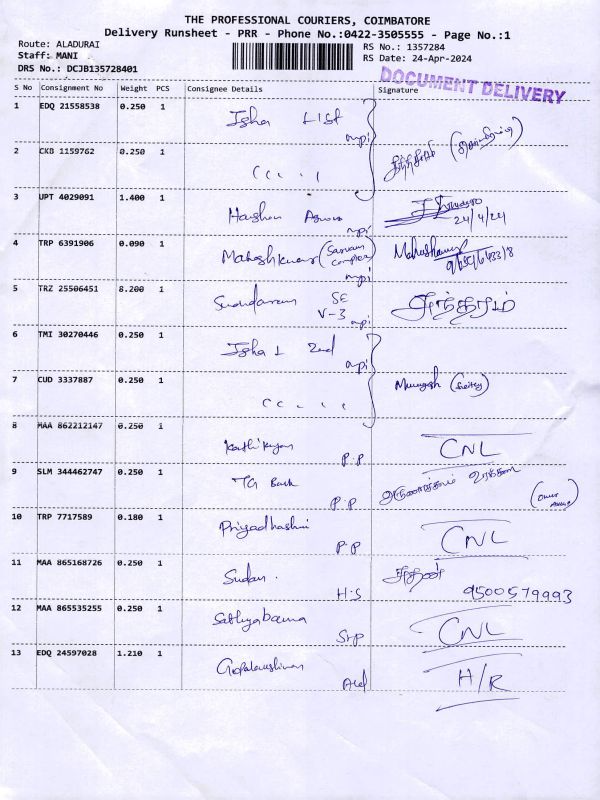 THE PROFESSIONAL COURIERS, COIMBATORE
Delivery Runsheet - PRR - Phone No.:0422-3505555 - Page No.:1
Route: ALADURAI
RS No.: 1357284
Staff: MANI
RS Date: 24-Apr-2024
DRS No.: DCJB135728401
DOCUMENT DELIVERY
S No Consignment No Weight PCS Consignee Details Signature
1 EDQ 21558538 0.250 1 Isha 1 1st
mpi
2 CKB 1159762 0.250 1
3 UPT 4029091 1.400 1
mpi
24/4/24
4 TRP 6391906 0.090 1 Maheshkumar (Sarvam complex)
mpi
5 TRZ 25506451 8.200 1 Sundaram SE
V-3 mpi
சுந்தரம்
6 TMI 30270446 0.250 1 Isha 1 2nd
mpi
7 CUD 3337887 0.250 1
Murugesh
8 MAA 862212147 0.250 1 Karthikeyan
P.P CNL
9 SLM 344462747 0.250 1 Bank
P.P
10 TRP 7717589 0.180 1 Priyadharshini
P.P CNL
11 MAA 865168726 0.250 1 Sudan.
H.S 9500579993
12 MAA 865535255 0.250 1 Sathyabama
Srp CNL
13 EDQ 24597028 1.210 1 Gopalakrishnan
H/R